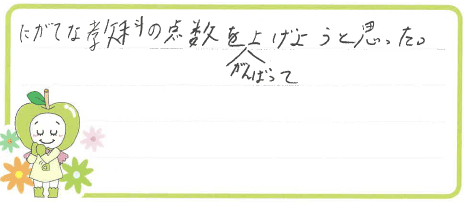 にがてな教科の点数を上げようと思った。
がんばって